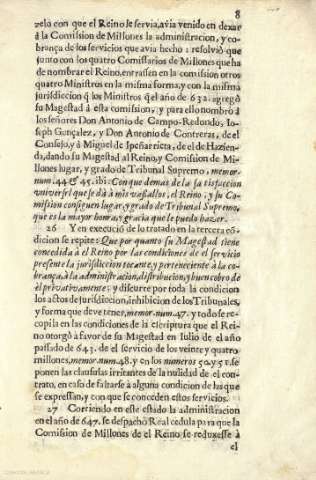 8
zelo con que el Reino se servia, avia venido en dexar
à la Comission de Millones la administracion, y co-
brança de los servicios que avia hecho: resolviò que
junto con los quatro Comissarios de Millones que ha
de nombrar el Reino, entrassen en la comission otros
quatro Ministros en la misma forma, y con la misma
jurisdiccion q̃ los Ministros q̃ el año de 632. agregò
su Magestad à esta comission, y para ello nombrò a
los señores Don Antonio de Campo-Redondo, Io-
seph Gonçalez, y Don Antonio de Contreras, de el
Consejo, y à Miguel de Ipeñarrieta, de el de Hazien-
da, dando su Magestad al Reino, y Comission de Mi-
llones lugar, y grado de Tribunal Supremo, memor.
num. 44. & 45. ibi: Con que demàs de la satisfaccion
universal que se dà à mis vassallos, el Reino, y su Co-
mission consiguen lugar, y grado de Tribunal Supremo,
que es la mayor honra, y gracia que le puedo hazer.
26 Y en execucion de lo tratado en la tercera cõ-
dicion se repite: Que por quanto su Magestad tiene
concedida à el Reino por las condiciones de el servicio
presente la jurisdiccion tocante, y perteneciente à la co-
brança, à la administracion, distribucion, y buen cobro de
èl privativamente; y discurre por toda la condicion
los actos de jurisdiccion, inhibicion de los Tribunales,
y forma que deve tener, memor. num. 47. y todo se re-
copila en las condiciones de la escriptura que el Rei-
no otorgò à favor de su Magestad en Iulio de el año
passado de 643. de el servicio de los veinte y quatro
millones, memor. num. 48. y en los numeros 50. y 51. se
ponen las clausulas irritantes de la nulidad de el con-
trato, en caso de faltarse à alguna condicion de las que
se expressan, y con que se conceden estos servicios.
27 Corriendo en este estado la administracion
en el año de 647. se despachò Real cedula para que la
Comission de Millones de el Reino se reduxesse à
el